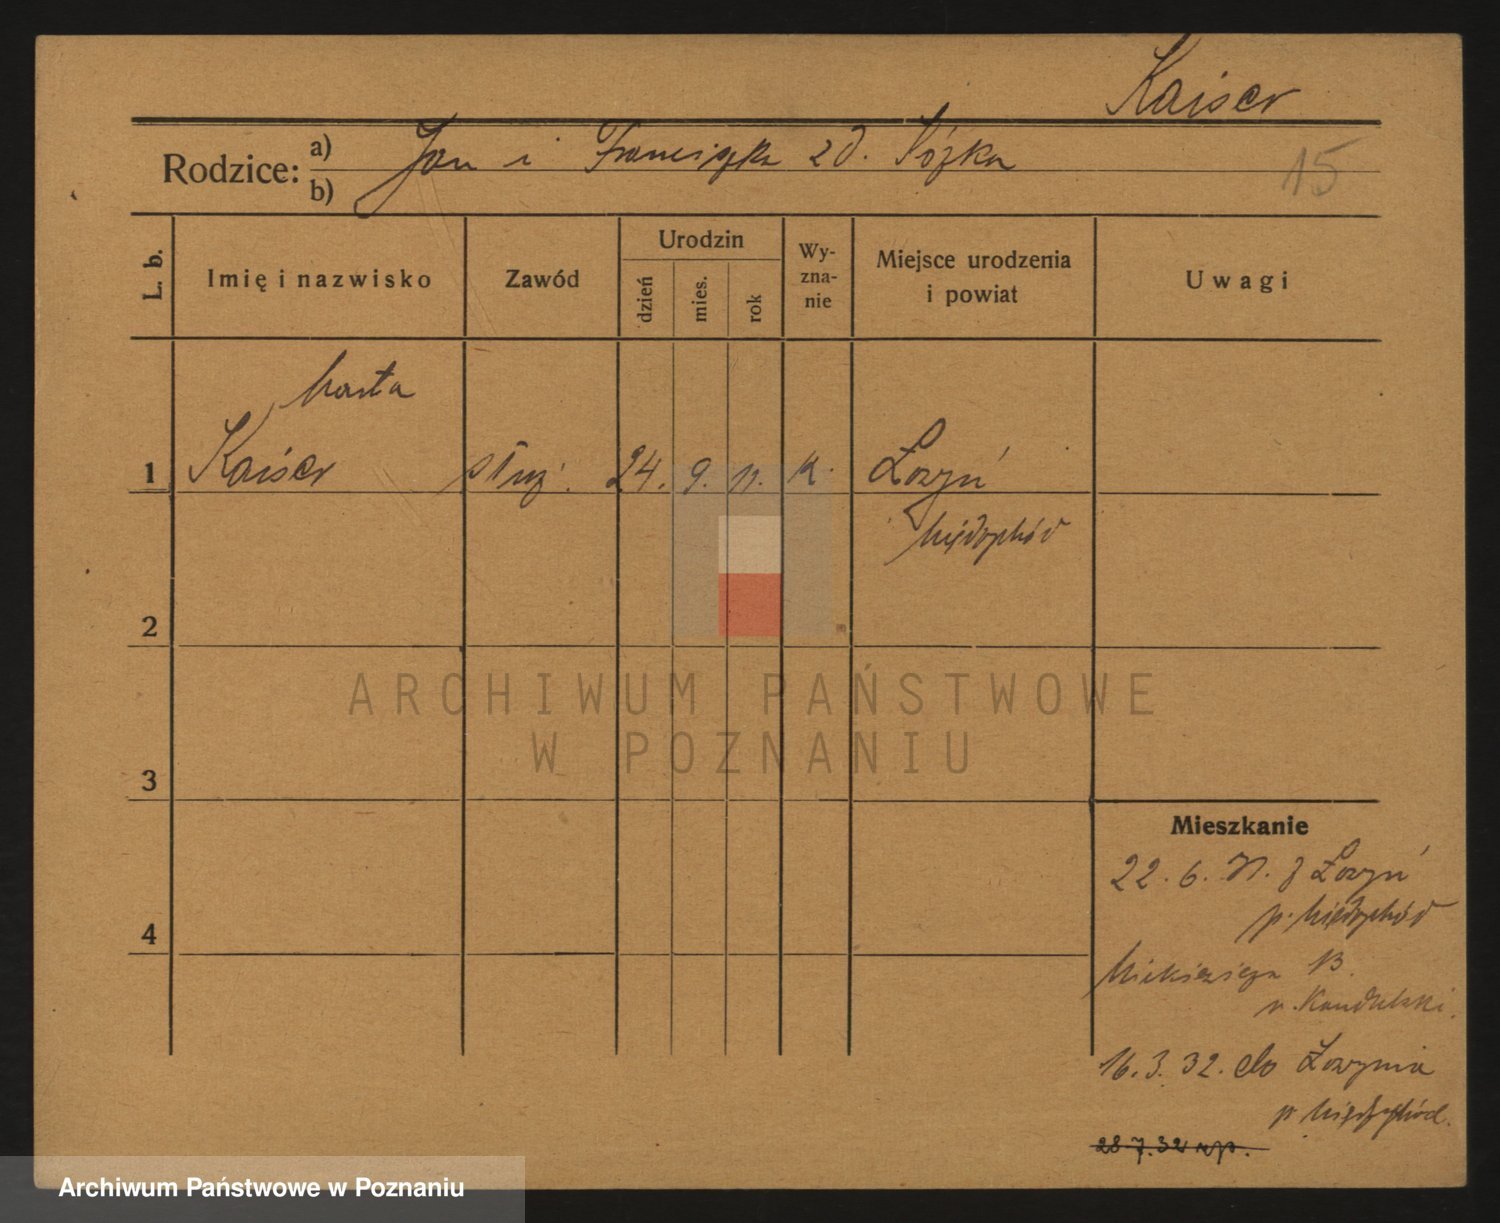 Kaiser
Rodzice: a) Jan i Franciszka zd. Łóżka
b)
15
L. b.
Imię i nazwisko
Zawód
Urodzin
dzień
mies.
rok
Wy-
zna-
nie
Miejsce urodzenia
i powiat
Uwagi
Marta
1 Kaiser służ. 24. 9. 11. k. Łowyń
Międzychód
2
ARCHIWUM PAŃSTWOWE
W POZNANIU
3
Mieszkanie
22. 6. 31. z Łowyń
p. Międzychód
4
Mickiewicza 13.
16. 3. 32. do Łowynia
p. Międzychód.
28.7.32
Archiwum Państwowe w Poznaniu